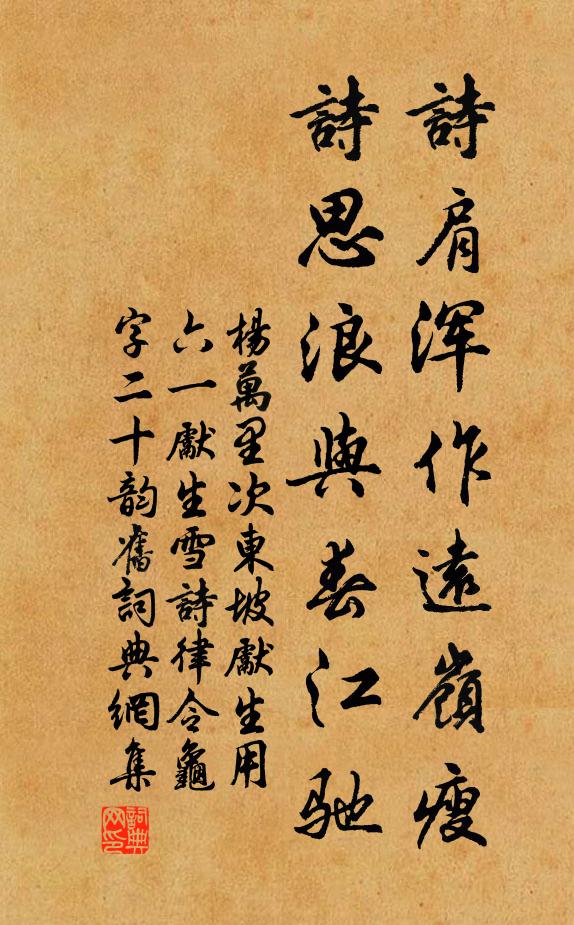 詩肩渾作遠嶺瘦
詩思浪與春江馳
楊萬里次東坡獻生用
六一獻生雪詩律令龜
字二十韵舊詞典網集
詞典网印